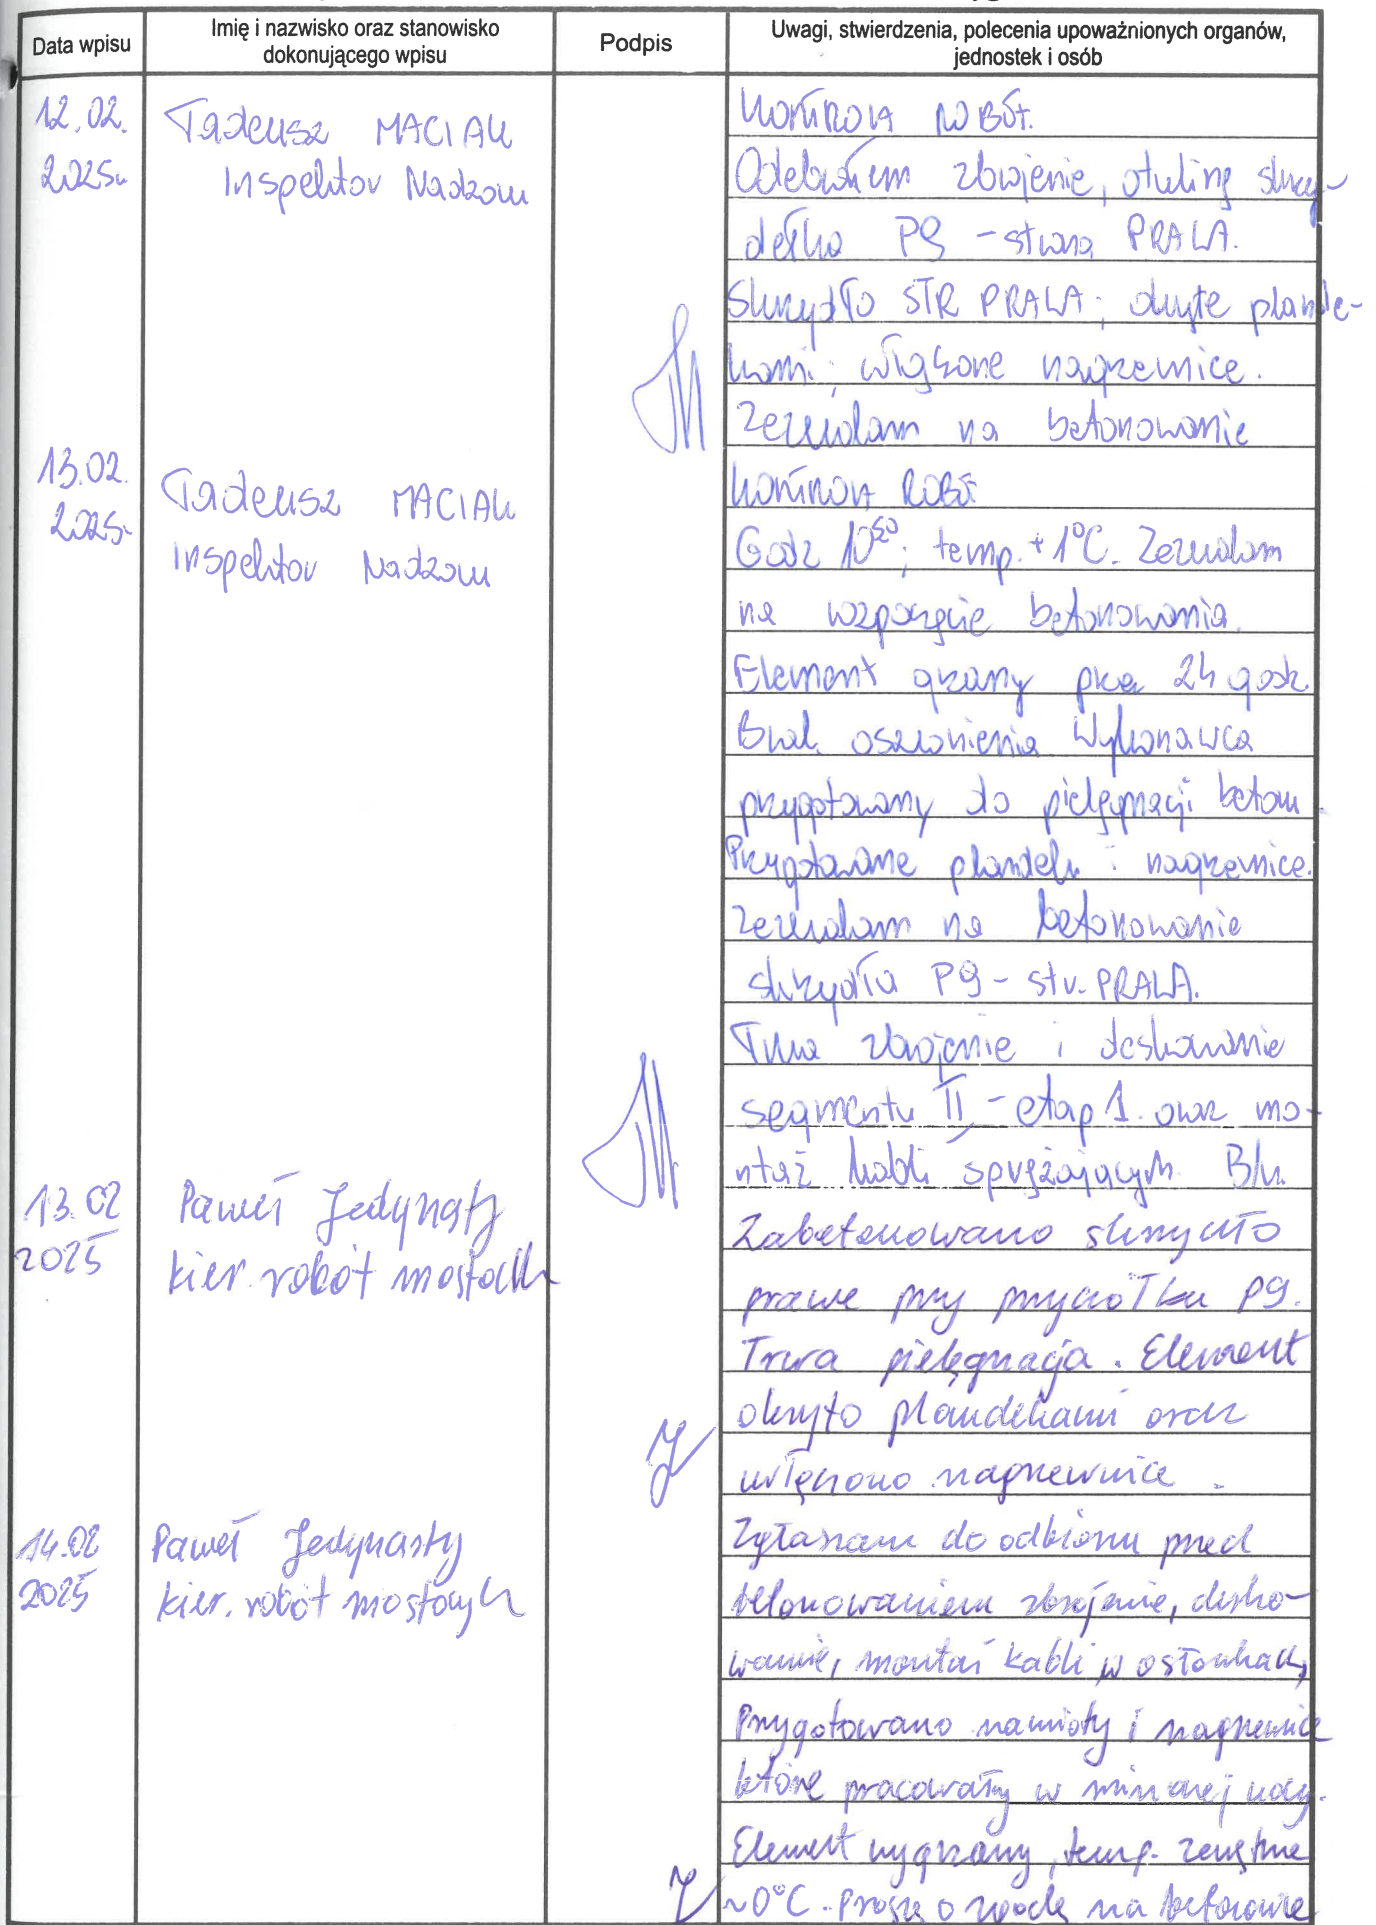 Data wpisu
Imię i nazwisko oraz stanowisko
dokonującego wpisu
Podpis
Uwagi, stwierdzenia, polecenia upoważnionych organów,
jednostek i osób
12.02.
2025r
Tadeusz MACIAK
Inspektor Nadzoru
Kontrola ROBÓT.
Odebrałem zbrojenie, otulinę skrzy-
dełka P9 - strona PRAWA.
Skrzydło STR PRAWA; okryte plande-
kami; włączone nagrzewnice.
Zezwalam na betonowanie
13.02.
2025r
Tadeusz MACIAK
Inspektor Nadzoru
Kontrola ROBÓT
Godz 10⁵⁰; temp. +1°C. Zezwalam
na rozpoczęcie betonowania.
Element grzany przez 24 godz.
Brak oszronienia Wykonawca
przygotowany do pielęgnacji betonu.
Przygotowane plandeki i nagrzewnice.
Zezwalam na betonowanie
skrzydła P9 - str. PRAWA.
Trwa zbrojenie i deskowanie
segmentu II - etap 1. oraz mo-
ntaż kabli sprężających
13.02
2025
Paweł Jedynasty
kier. robót mostowych
Zabetonowano skrzydło
prawe przy przyczółku P9.
Trwa pielęgnacja. Element
okryto plandekami oraz
włączono nagrzewnice.
14.02
2025
Paweł Jedynasty
kier. robót mostowych
Zgłaszam do odbioru przed
betonowaniem zbrojenie, desko-
wanie, montaż kabli w osłonkach,
Przygotowano namioty i nagrzewnice
które pracowały w minionej nocy.
Element wygrzany, temp. zewnętrzne
~0°C. Proszę o zgodę na betonowanie